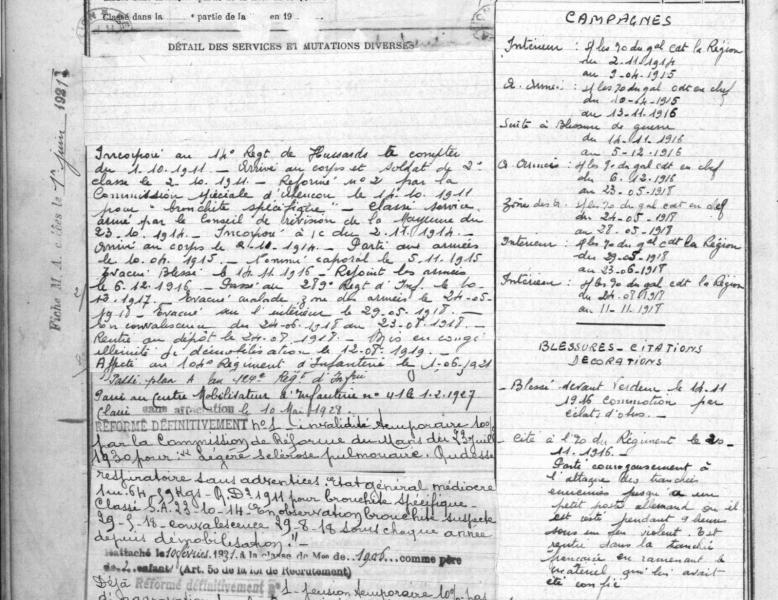 Classé dans la partie de la en 19
DÉTAIL DES SERVICES ET MUTATIONS DIVERSES
Fiche M. A. créées le 1er juin 1921
Incorporé au 14e Regt de Hussards à compter
du 1.10.1911. _ Arrivé au corps et soldat de 2e
classe le 2.10.1911. _ Réformé n° 2 par la
Commission spéciale d'Alençon le 10.1911
pour "bronchite spécifique" _ Classé service
armé par le Conseil de révision de la Mayenne du
23.10.1914. _ Incorporé à du 2.11.1914. _
Arrivé au corps le _ Parti aux armées
le 10.04.1915. _ Nommé caporal le 5.11.1915
Evacué Blessé le 14.11.1916 _ Rejoint les armées
le 6.12.1916 _ Passé au 289e Regt d'Inf. le 10-
1917. _ Evacué malade, zone des armées le 24-05-
1918 _ Evacué sur l'intérieur le 29.05.1918 _
En convalescence du 24-06-1918 au 23.08.1918. _
Rentré au dépôt le 24.08.1918. _ Mis en congé
illimité de démobilisation le 12.08.1919. _
Affecté au 104e Régiment d'Infanterie le 1-06-1921
Passé plan A au 124e Regt d'Infrie
Passé au Centre Mobilisateur d'Infanterie n° 41 le 1.2.1927
Classé sans affectation le 10 Mai 1928
RÉFORMÉ DÉFINITIVEMENT n° 1 _ invalidité temporaire 10%
par la Commission de Réforme du Mans du 23 Juil
1930 pour: "légère sclérose pulmonaire. Rudesse
respiratoire sans adventices. Etat général médiocre
1m.64 - 59 Kgs - R.D2 1911 pour bronchite spécifique
Classé S.A. 23-10-14. En observation bronchite suspecte
29-5-18 - convalescence 29-8-18 sous chaque année
depuis démobilisation"
Rattaché le 10 févri. 1931 à la classe de Mse de 1906 comme père
de 2 enfant (Art. 58 de la loi de Recrutement)
Déjà Réformé définitivement n° 1 - pension temporaire 10% pas
d'aggravation
CAMPAGNES
Intérieur : s/les ⁠Do du gal cdt la Région
du 2-11-1914
au 9-04-1915
A. Armées : s/les Do du gal cdt en chef
du 10-04-1915
au 13-11-1916
Suite à Blessure de guerre
du 14-11-1916
au 5-12-1916
A Armées : s/les Do du gal cdt en chef
du 6.12.1916
au 23-05-1918
Zone des a. s/les Do du gal cdt en chef
du 24-05-1918
au 28-05-1918
Intérieur : s/les Do du gal cdt la Région
du 29-05-1918
au 23-06-1918
Intérieur : s/les Do du gal cdt la Région
du 24.08.1918
au 11-11-1918
BLESSURES - CITATIONS
DECORATIONS
_ Blessé devant Verdun le 14.11
1916 commotion par
éclats d'obus. _
_ Cité à l'Do du Régiment le 20-
11.1916. _
Porté courageusement à
l'attaque des tranchées
ennemies jusqu'à un
petit poste allemand où il
est resté pendant 9 heures
sous un feu violent. Est
rentré dans la tranchée
française en ramenant le
matériel qui lui avait
été confié